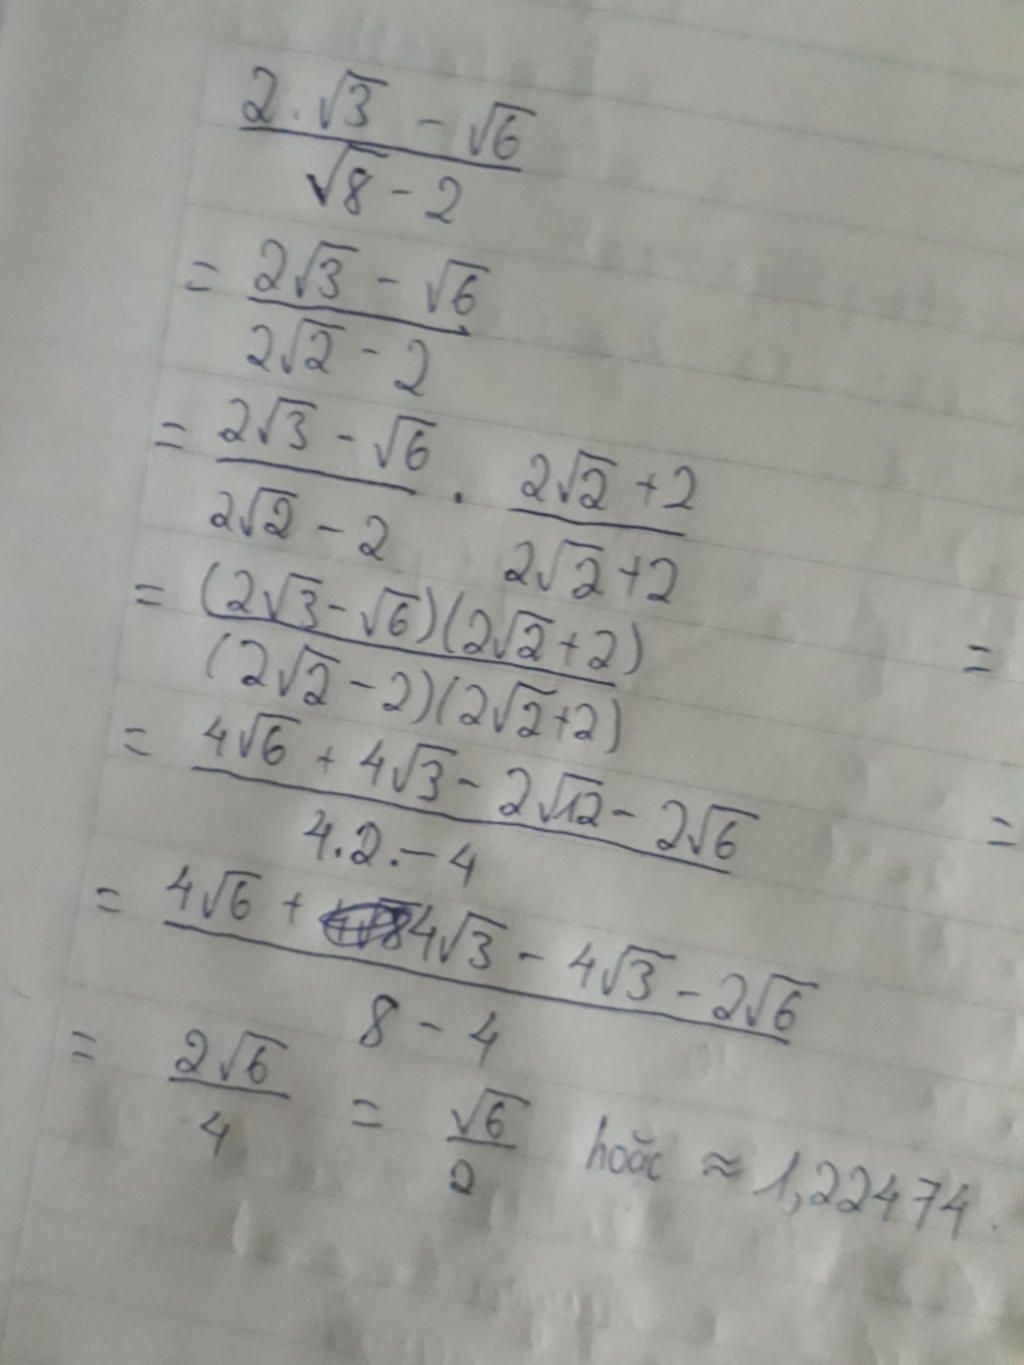 2.√3 - √6
√8 - 2
= 2√3 - √6
2√2 - 2
= 2√3 - √6 . 2√2 + 2
2√2 - 2 2√2 + 2
= (2√3 - √6)(2√2 + 2) =
(2√2 - 2)(2√2 + 2)
= 4√6 + 4√3 - 2√12 - 2√6 =
4.2. - 4
= 4√6 + 4√3 - 4√3 - 2√6
8 - 4
= 2√6 = √6 hoặc ≈ 1,22474.
4 2